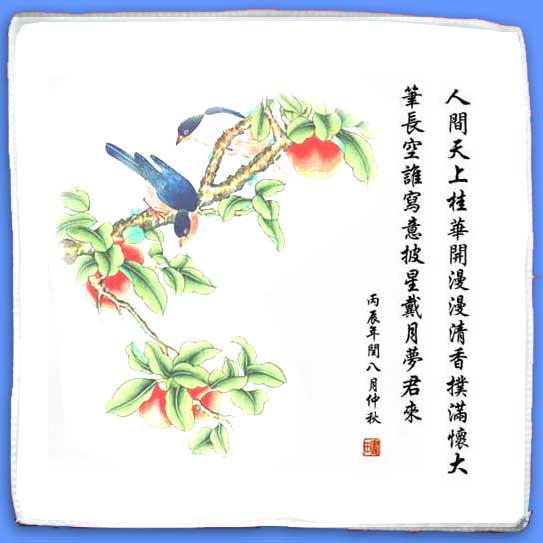 人間天上桂華開漫漫清香撲滿懷大
筆長空誰寫意披星戴月夢君來
丙辰年閏八月仲秋